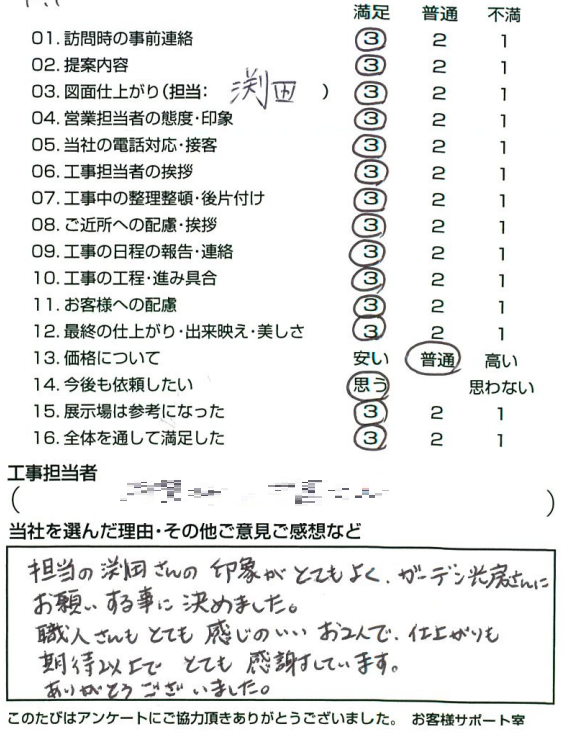 満足 普通 不満
01. 訪問時の事前連絡 3 2 1
02. 提案内容 3 2 1
03. 図面仕上がり(担当: 渕田 ) 3 2 1
04. 営業担当者の態度・印象 3 2 1
05. 当社の電話対応・接客 3 2 1
06. 工事担当者の挨拶 3 2 1
07. 工事中の整理整頓・後片付け 3 2 1
08. ご近所への配慮・挨拶 3 2 1
09. 工事の日程の報告・連絡 3 2 1
10. 工事の工程・進み具合 3 2 1
11. お客様への配慮 3 2 1
12. 最終の仕上がり・出来映え・美しさ 3 2 1
13. 価格について 安い 普通 高い
14. 今後も依頼したい 思う 思わない
15. 展示場は参考になった 3 2 1
16. 全体を通して満足した 3 2 1
工事担当者
( )
当社を選んだ理由・その他ご意見ご感想など
担当の渕田さんの 印象が とてもよく、ガーデン光房さんに
お願いする事に 決めました。
職人さんも とても 感じのいい お2人で、仕上がりも
期待以上で とても 感謝しています。
ありがとうございました。
このたびはアンケートにご協力頂きありがとうございました。 お客様サポート室